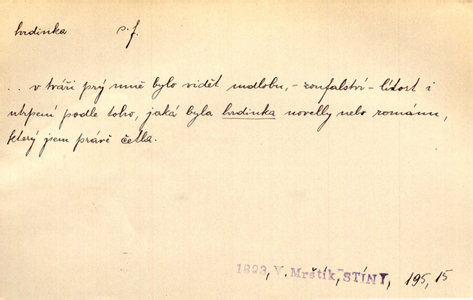 hrdinka s. f.
.. v tváři prý mně bylo vidět mdlobu, - zoufalství - lítost i
utrpení podle toho, jaká byla hrdinka novelly nebo románu,
který jsem právě četla.
1893, V. Mrštík, STÍNY, 195, 15